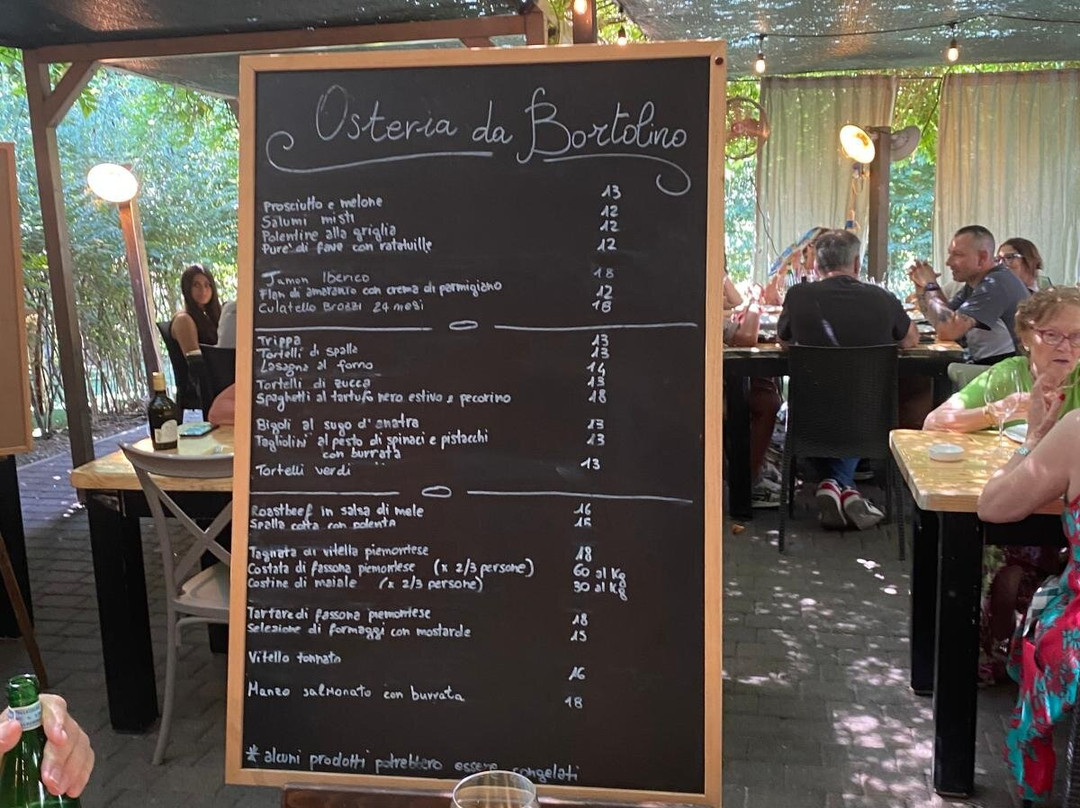 Osteria da Bortolino
Prosciutto e melone 13
Salumi misti 12
Polentine alla griglia 12
Pure' di fave con ratatuille 12
Jamon Iberico 18
Flan di amaranto con crema di parmigiano 12
Culatello Brozzi 24 mesi 18
Trippa 13
Tortelli di spalla 13
Lasagna al forno 14
Tortelli di zucca 13
Spaghetti al tartufo nero estivo e pecorino 18
Bigoli al sugo d'anatra 13
Tagliolini al pesto di spinaci e pistacchi 13
con burrata
Tortelli verdi 13
Roastbeef in salsa di mele 16
Spalla cotta con polenta 15
Tagliata di vitella piemontese 18
Costata di fassona piemontese (x 2/3 persone) 60 al Kg
Costine di maiale (x 2/3 persone) 30 al Kg
Tartare di fassona piemontese 18
Selezione di formaggi con mostarde 15
Vitello tonnato
16
Manzo salmonato con burrata 18
* alcuni prodotti potrebbero essere congelati